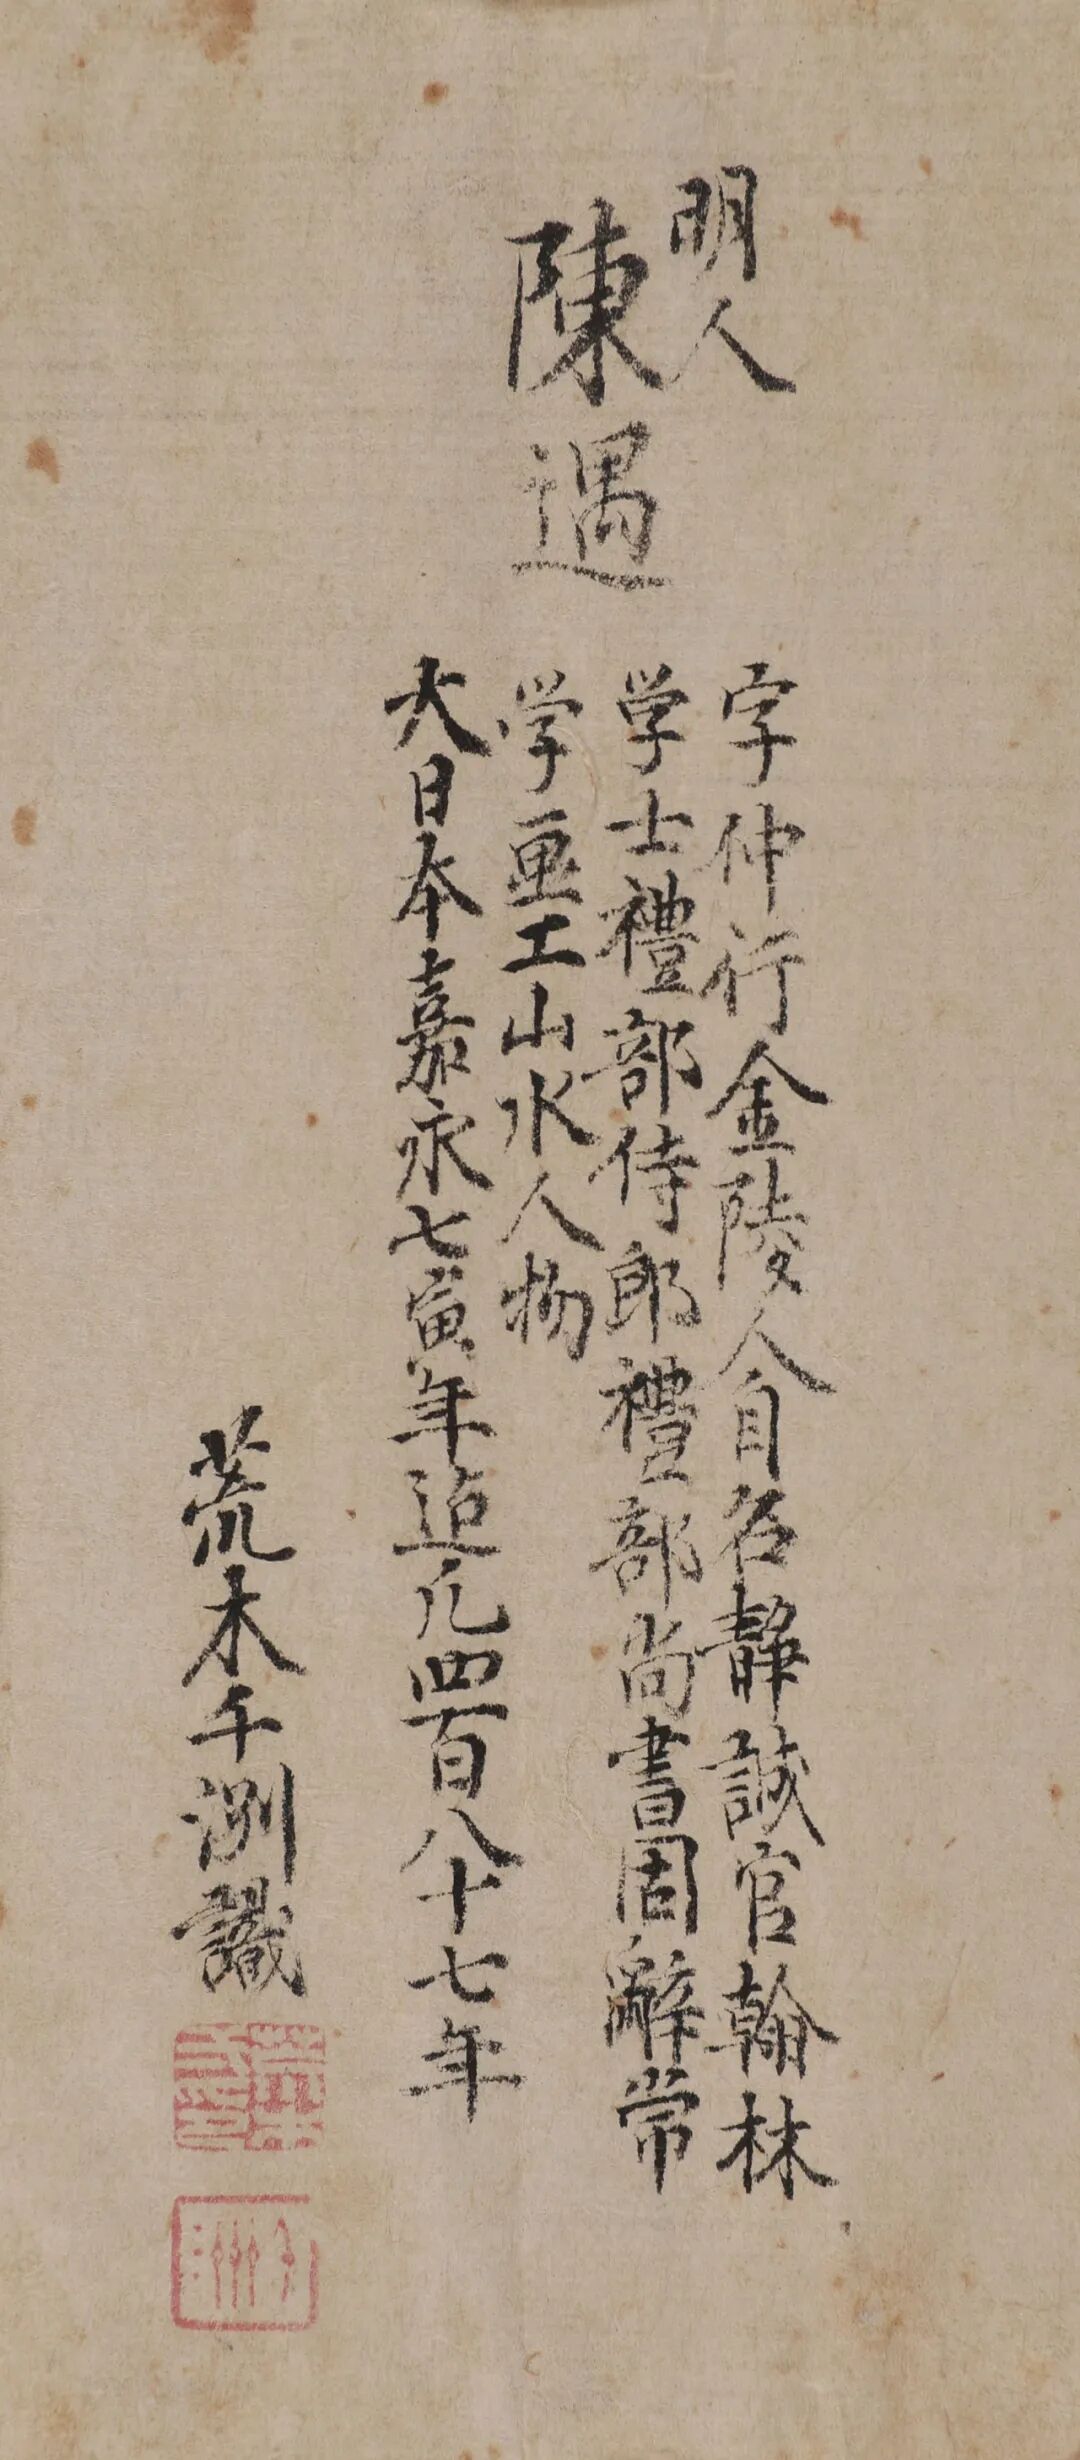 明人
陳遇
字仲行金陵人自名靜誠官翰林
学士禮部侍郎禮部尚書固辭常
学画工山水人物
大日本嘉永七寅年迠凡四百八十七年
荒木千洌識